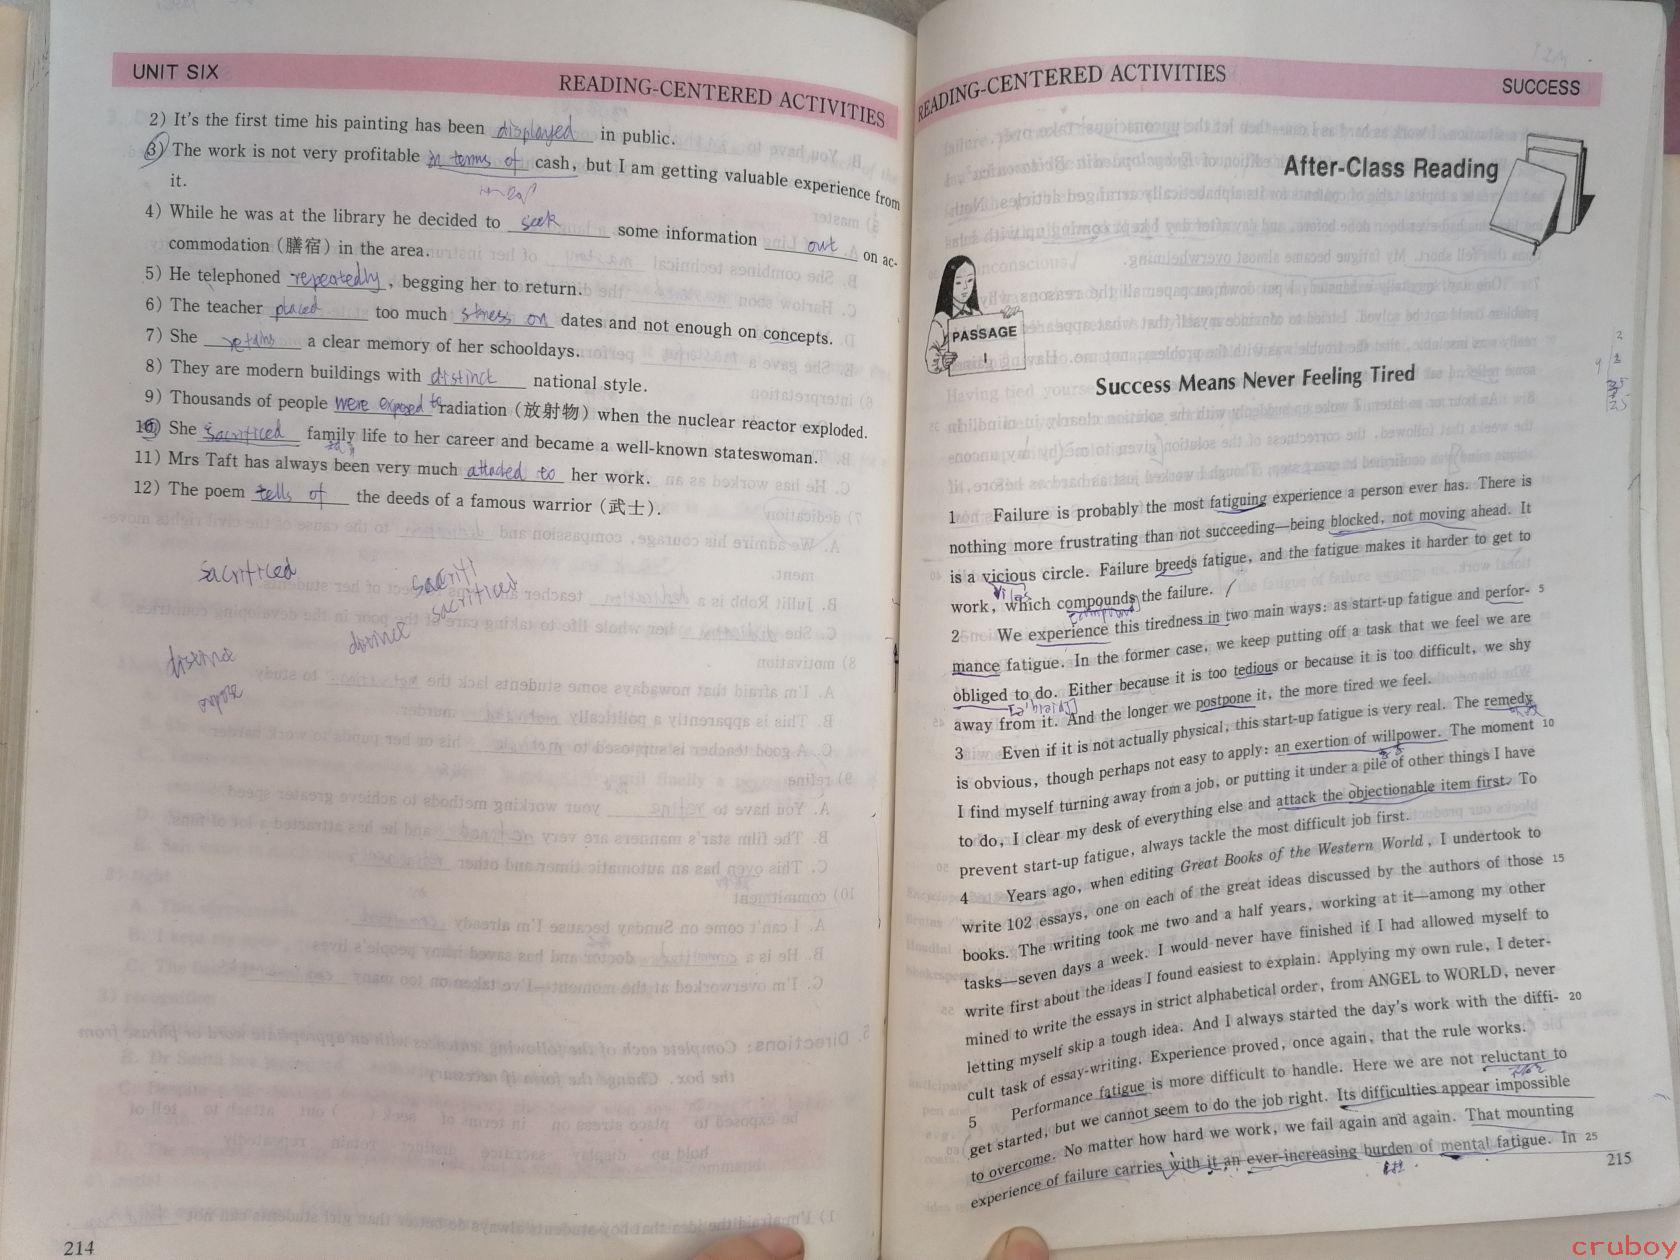 UNIT SIX
READING-CENTERED ACTIVITIES
2) It's the first time his painting has been displayed in public.
3) The work is not very profitable in terms of cash, but I am getting valuable experience from
it.
4) While he was at the library he decided to seek some information out on ac-
commodation (膳宿) in the area.
5) He telephoned repeatedly, begging her to return.
6) The teacher placed too much stress on dates and not enough on concepts.
7) She retains a clear memory of her schooldays.
8) They are modern buildings with distinct national style.
9) Thousands of people were exposed to radiation (放射物) when the nuclear reactor exploded.
10) She sacrificed family life to her career and became a well-known stateswoman.
11) Mrs Taft has always been very much attached to her work.
12) The poem tells of the deeds of a famous warrior (武士).
sacrificed
sacrificed
214
READING-CENTERED ACTIVITIES
SUCCESS
After-Class Reading
PASSAGE
I
Success Means Never Feeling Tired
1 Failure is probably the most fatiguing experience a person ever has. There is
nothing more frustrating than not succeeding—being blocked, not moving ahead. It
is a vicious circle. Failure breeds fatigue, and the fatigue makes it harder to get to
work, which compounds the failure.
2 We experience this tiredness in two main ways: as start-up fatigue and perfor- 5
mance fatigue. In the former case, we keep putting off a task that we feel we are
obliged to do. Either because it is too tedious or because it is too difficult, we shy
away from it. And the longer we postpone it, the more tired we feel.
3 Even if it is not actually physical, this start-up fatigue is very real. The remedy
is obvious, though perhaps not easy to apply: an exertion of willpower. The moment 10
I find myself turning away from a job, or putting it under a pile of other things I have
to do, I clear my desk of everything else and attack the objectionable item first. To
prevent start-up fatigue, always tackle the most difficult job first.
4 Years ago, when editing Great Books of the Western World, I undertook to
write 102 essays, one on each of the great ideas discussed by the authors of those 15
books. The writing took me two and a half years, working at it—among my other
tasks—seven days a week. I would never have finished if I had allowed myself to
write first about the ideas I found easiest to explain. Applying my own rule, I deter-
mined to write the essays in strict alphabetical order, from ANGEL to WORLD, never
letting myself skip a tough idea. And I always started the day's work with the diffi- 20
cult task of essay-writing. Experience proved, once again, that the rule works.
5 Performance fatigue is more difficult to handle. Here we are not reluctant to
get started, but we cannot seem to do the job right. Its difficulties appear impossible
to overcome. No matter how hard we work, we fail again and again. That mounting
experience of failure carries with it an ever-increasing burden of mental fatigue. In 25
215
cruboy